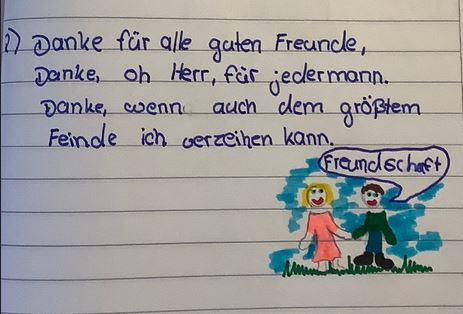 2) Danke für alle guten Freunde,
Danke, oh Herr, für jedermann.
Danke, wenn auch dem größtem
Feinde ich verzeihen kann.
Freundschaft